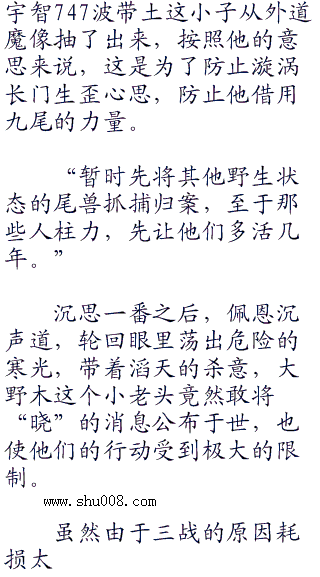 宇智747波带土这小子从外道
魔像抽了出来，按照他的意
思来说，这是为了防止漩涡
长门生歪心思，防止他借用
九尾的力量。
“暂时先将其他野生状
态的尾兽抓捕归案，至于那
些人柱力，先让他们多活几
年。”
沉思一番之后，佩恩沉
声道，轮回眼里荡出危险的
寒光，带着滔天的杀意，大
野木这个小老头竟然敢将
“晓”的消息公布于世，也
使他们的行动受到极大的限
制。
www.shu008.com
虽然由于三战的原因耗
损太